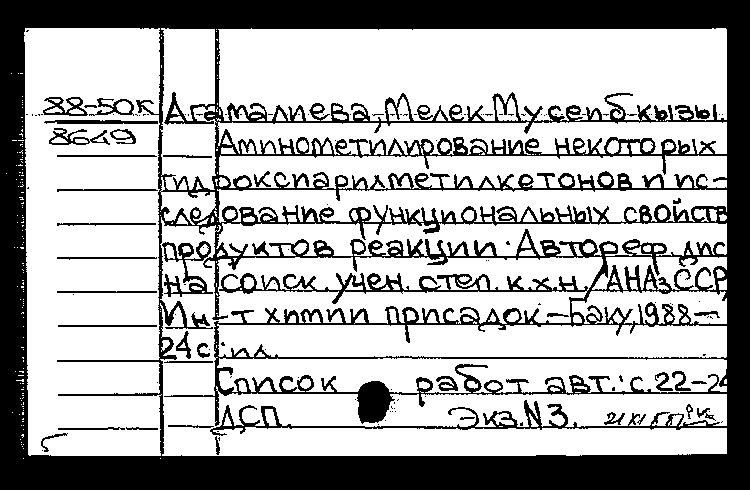 88-50к Агамалиева, Мелек Мусеиб кызы.
8649 Аминометилирование некоторых
гидроксиарилметилкетонов и ис-
следование функциональных свойств
продуктов реакции: Автореф. дис
на соиск. учен. степ. к.х.н. / АНАзССР,
Ин-т химии присадок.-Баку, 1988.-
24с.: ил.
Список работ авт.: с.22-24
ДСП. Экз.N3.